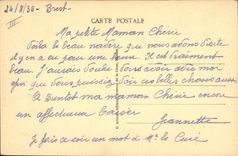 24/8/36 - Brest
III
CARTE POSTALE
Ma petite Maman Chérie
Voilà le beau navire que nous avons visité
il y en a eu pour une heure. Il est vraiment
beau. J'aurais voulu vous avoir avec moi
afin que vous puissiez voir ces belles choses aussi
A bientôt ma maman Chérie encore un
affectueux baiser
Jeannette
Je fais de suite un mot à Mr le Curé